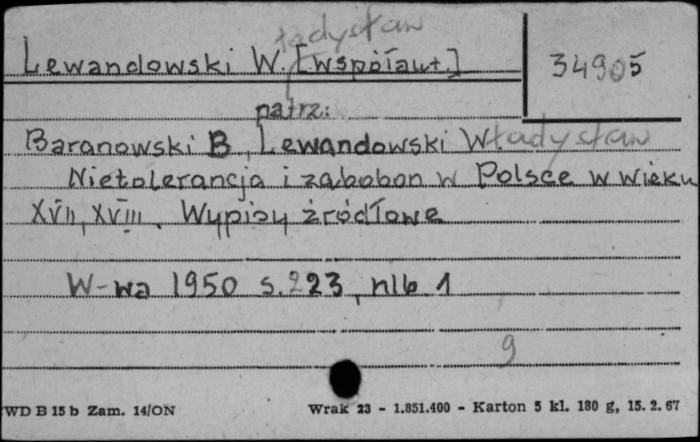 ładysław
Lewandowski W. [współaut.] 34905
patrz:
Baranowski B., Lewandowski Władysław
Nietolerancja i zabobon w Polsce w wieku
XVII, XVIII. Wypisy źródłowe
W-wa 1950 s. 223, nlb 1
9
WD B 15 b Zam. 14/ON Wrak 23 - 1.851.400 - Karton 5 kl. 180 g, 15. 2. 67